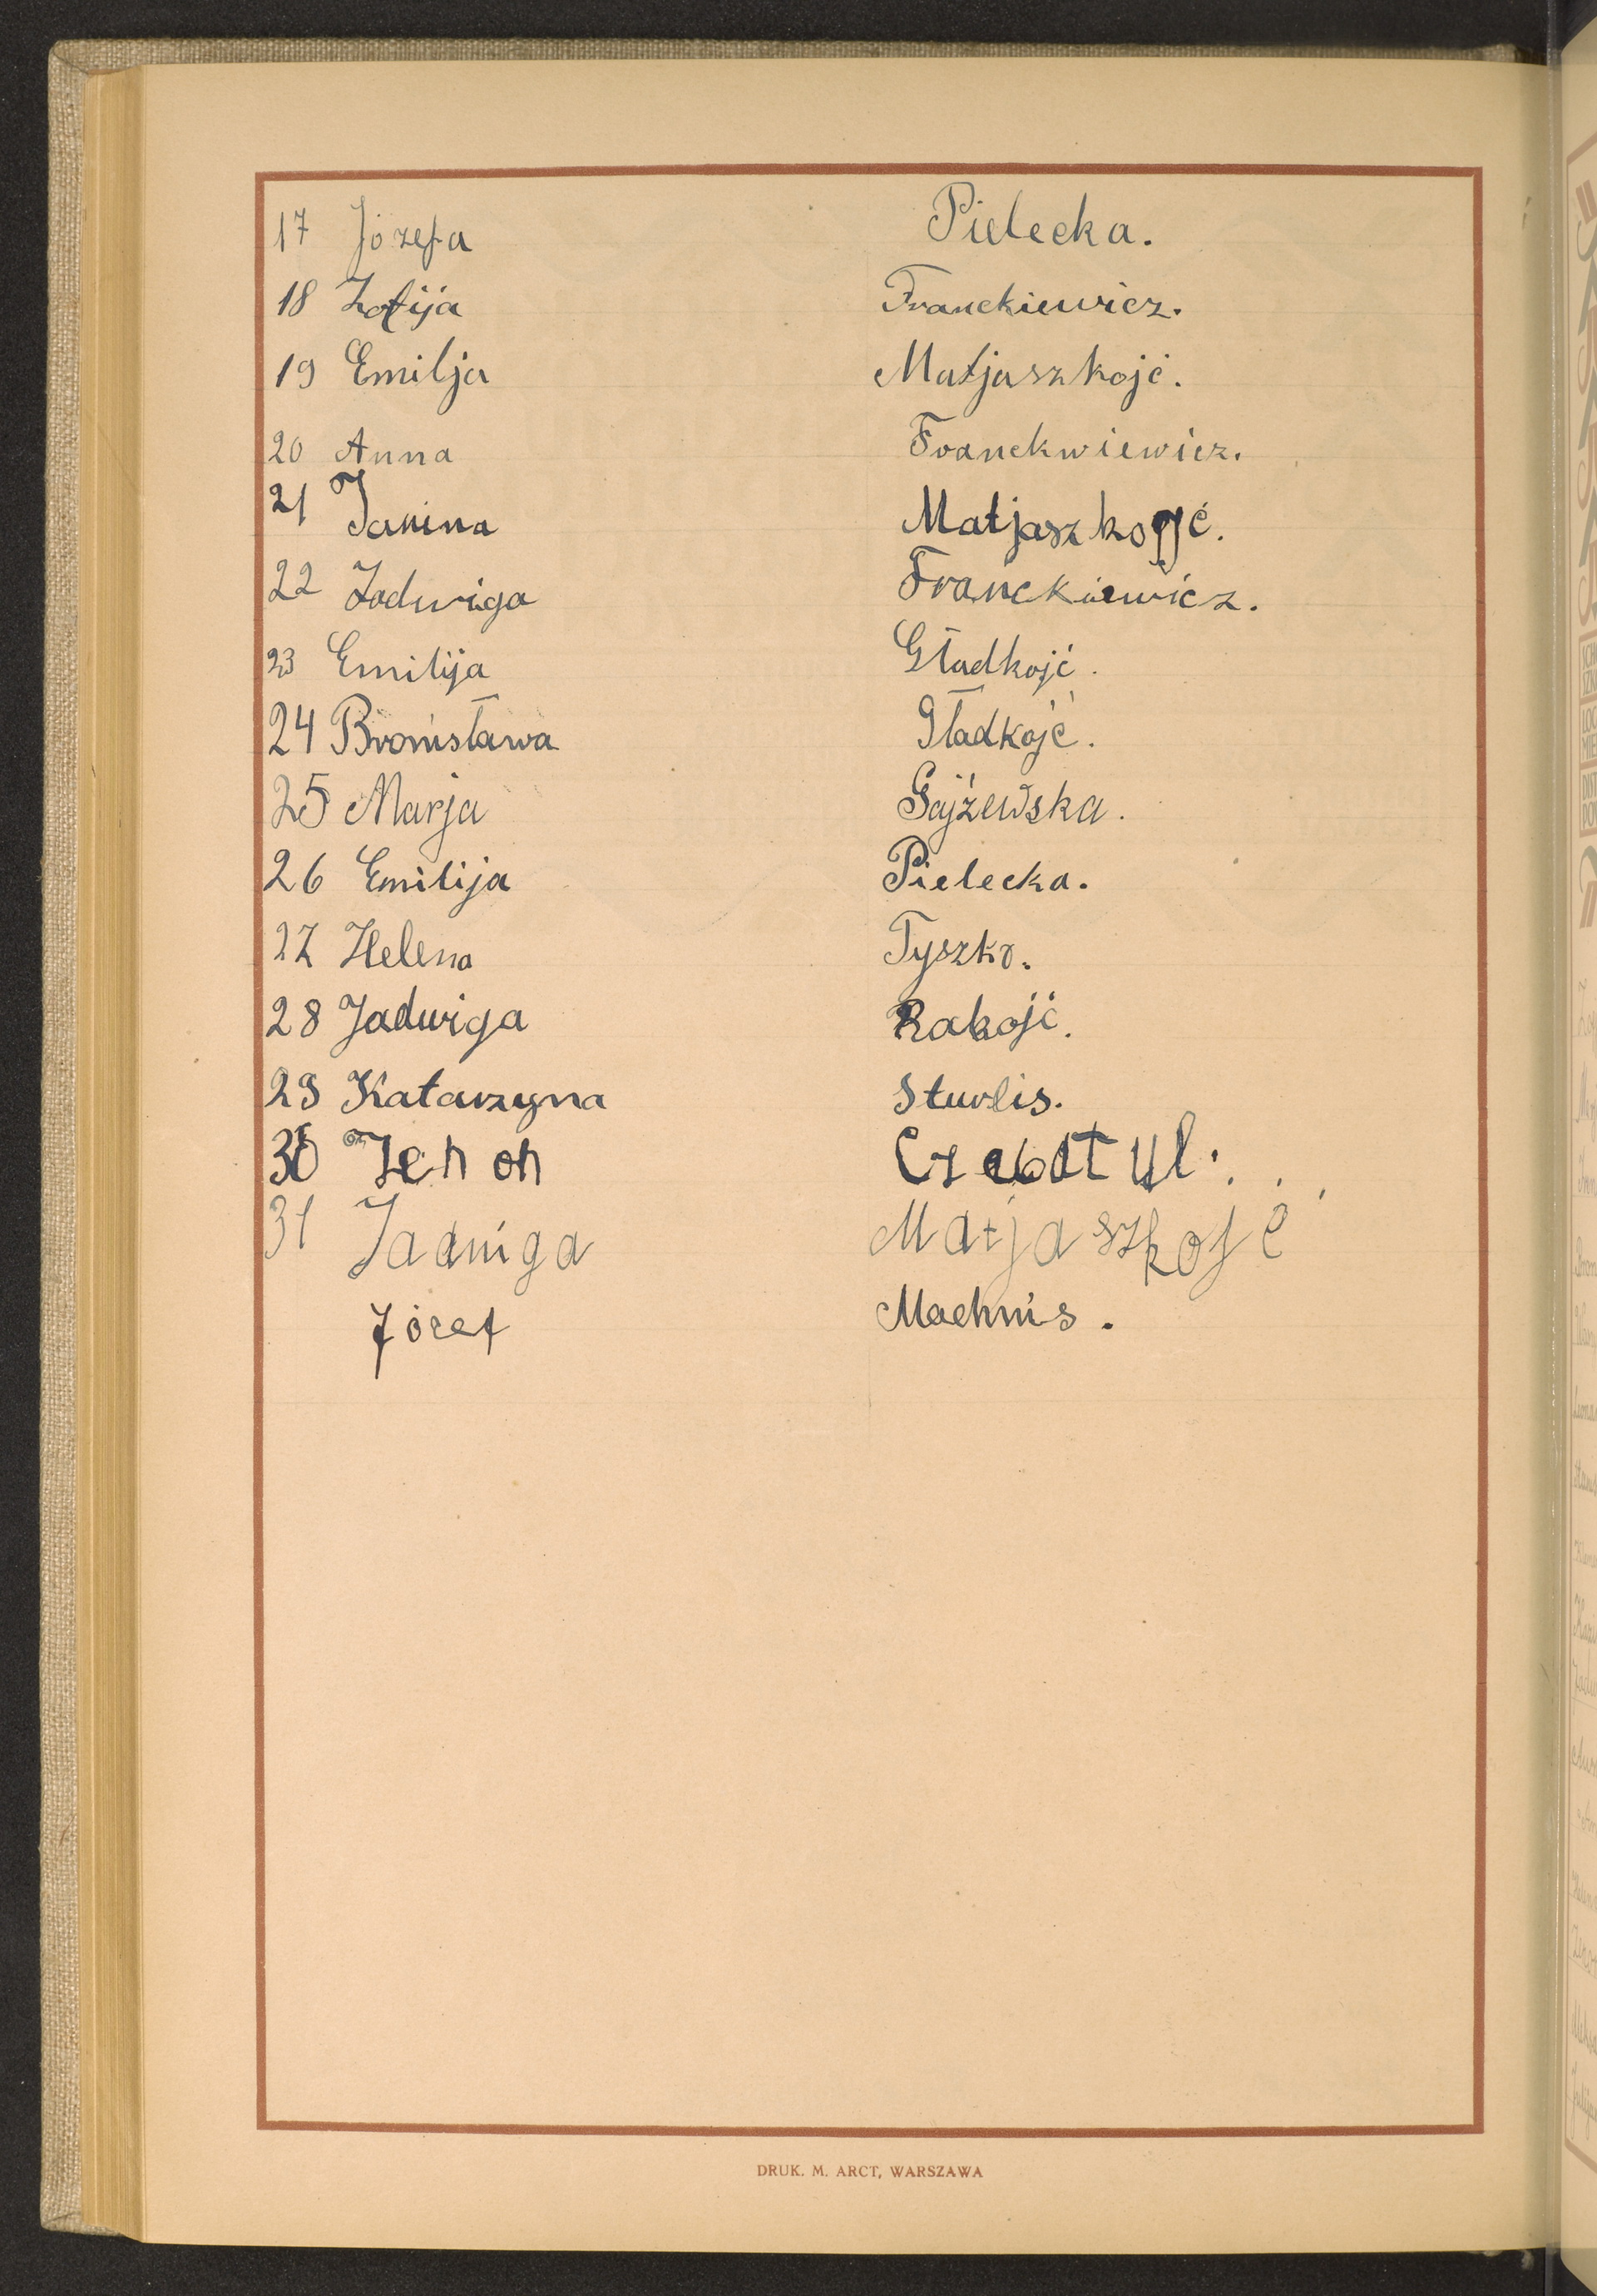 17 Józefa Pielecka.
18 Zofija Franckiewicz.
19 Emilja Matjaszkojć.
20 Anna Franckwiewicz.
21 Janina Matjaszkojć.
22 Jadwiga Franckiewicz.
23 Emilija Gładkojć.
24 Bronisława Gładkojć.
25 Marja Gajżewska.
26 Emilija Pielecka.
27 Helena Tyszko.
28 Jadwiga Rakojć.
29 Katarzyna Sturlis.
30 Zenon
31 Jadwiga Matjaszkojć
Józef Machnis.
DRUK. M. ARCT, WARSZAWA